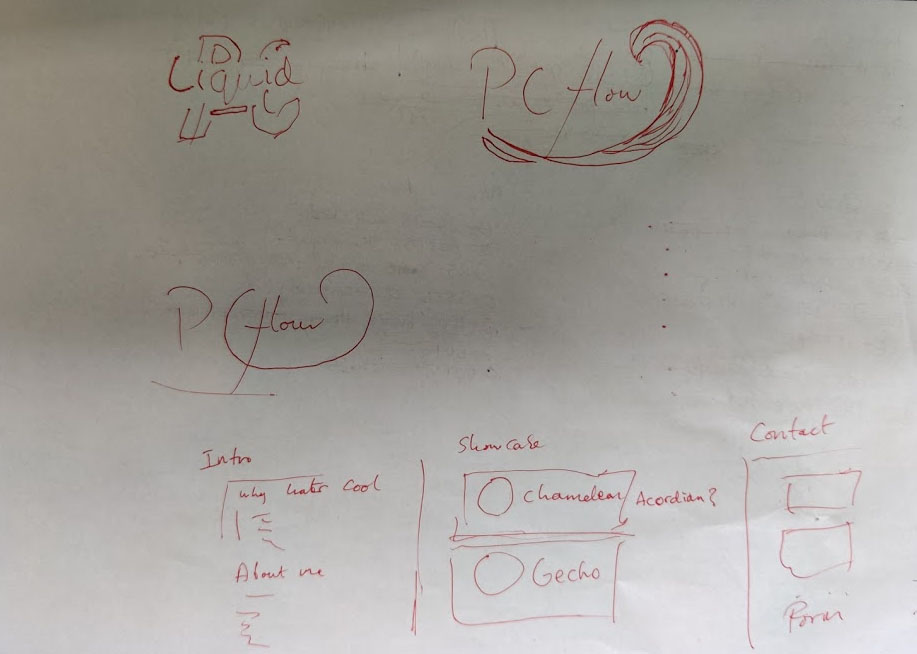 Liquid
PC flow
PC flow
Intro
Why water cool
About me
Showcase
Chamelean
Acordian?
Gecho
Contact